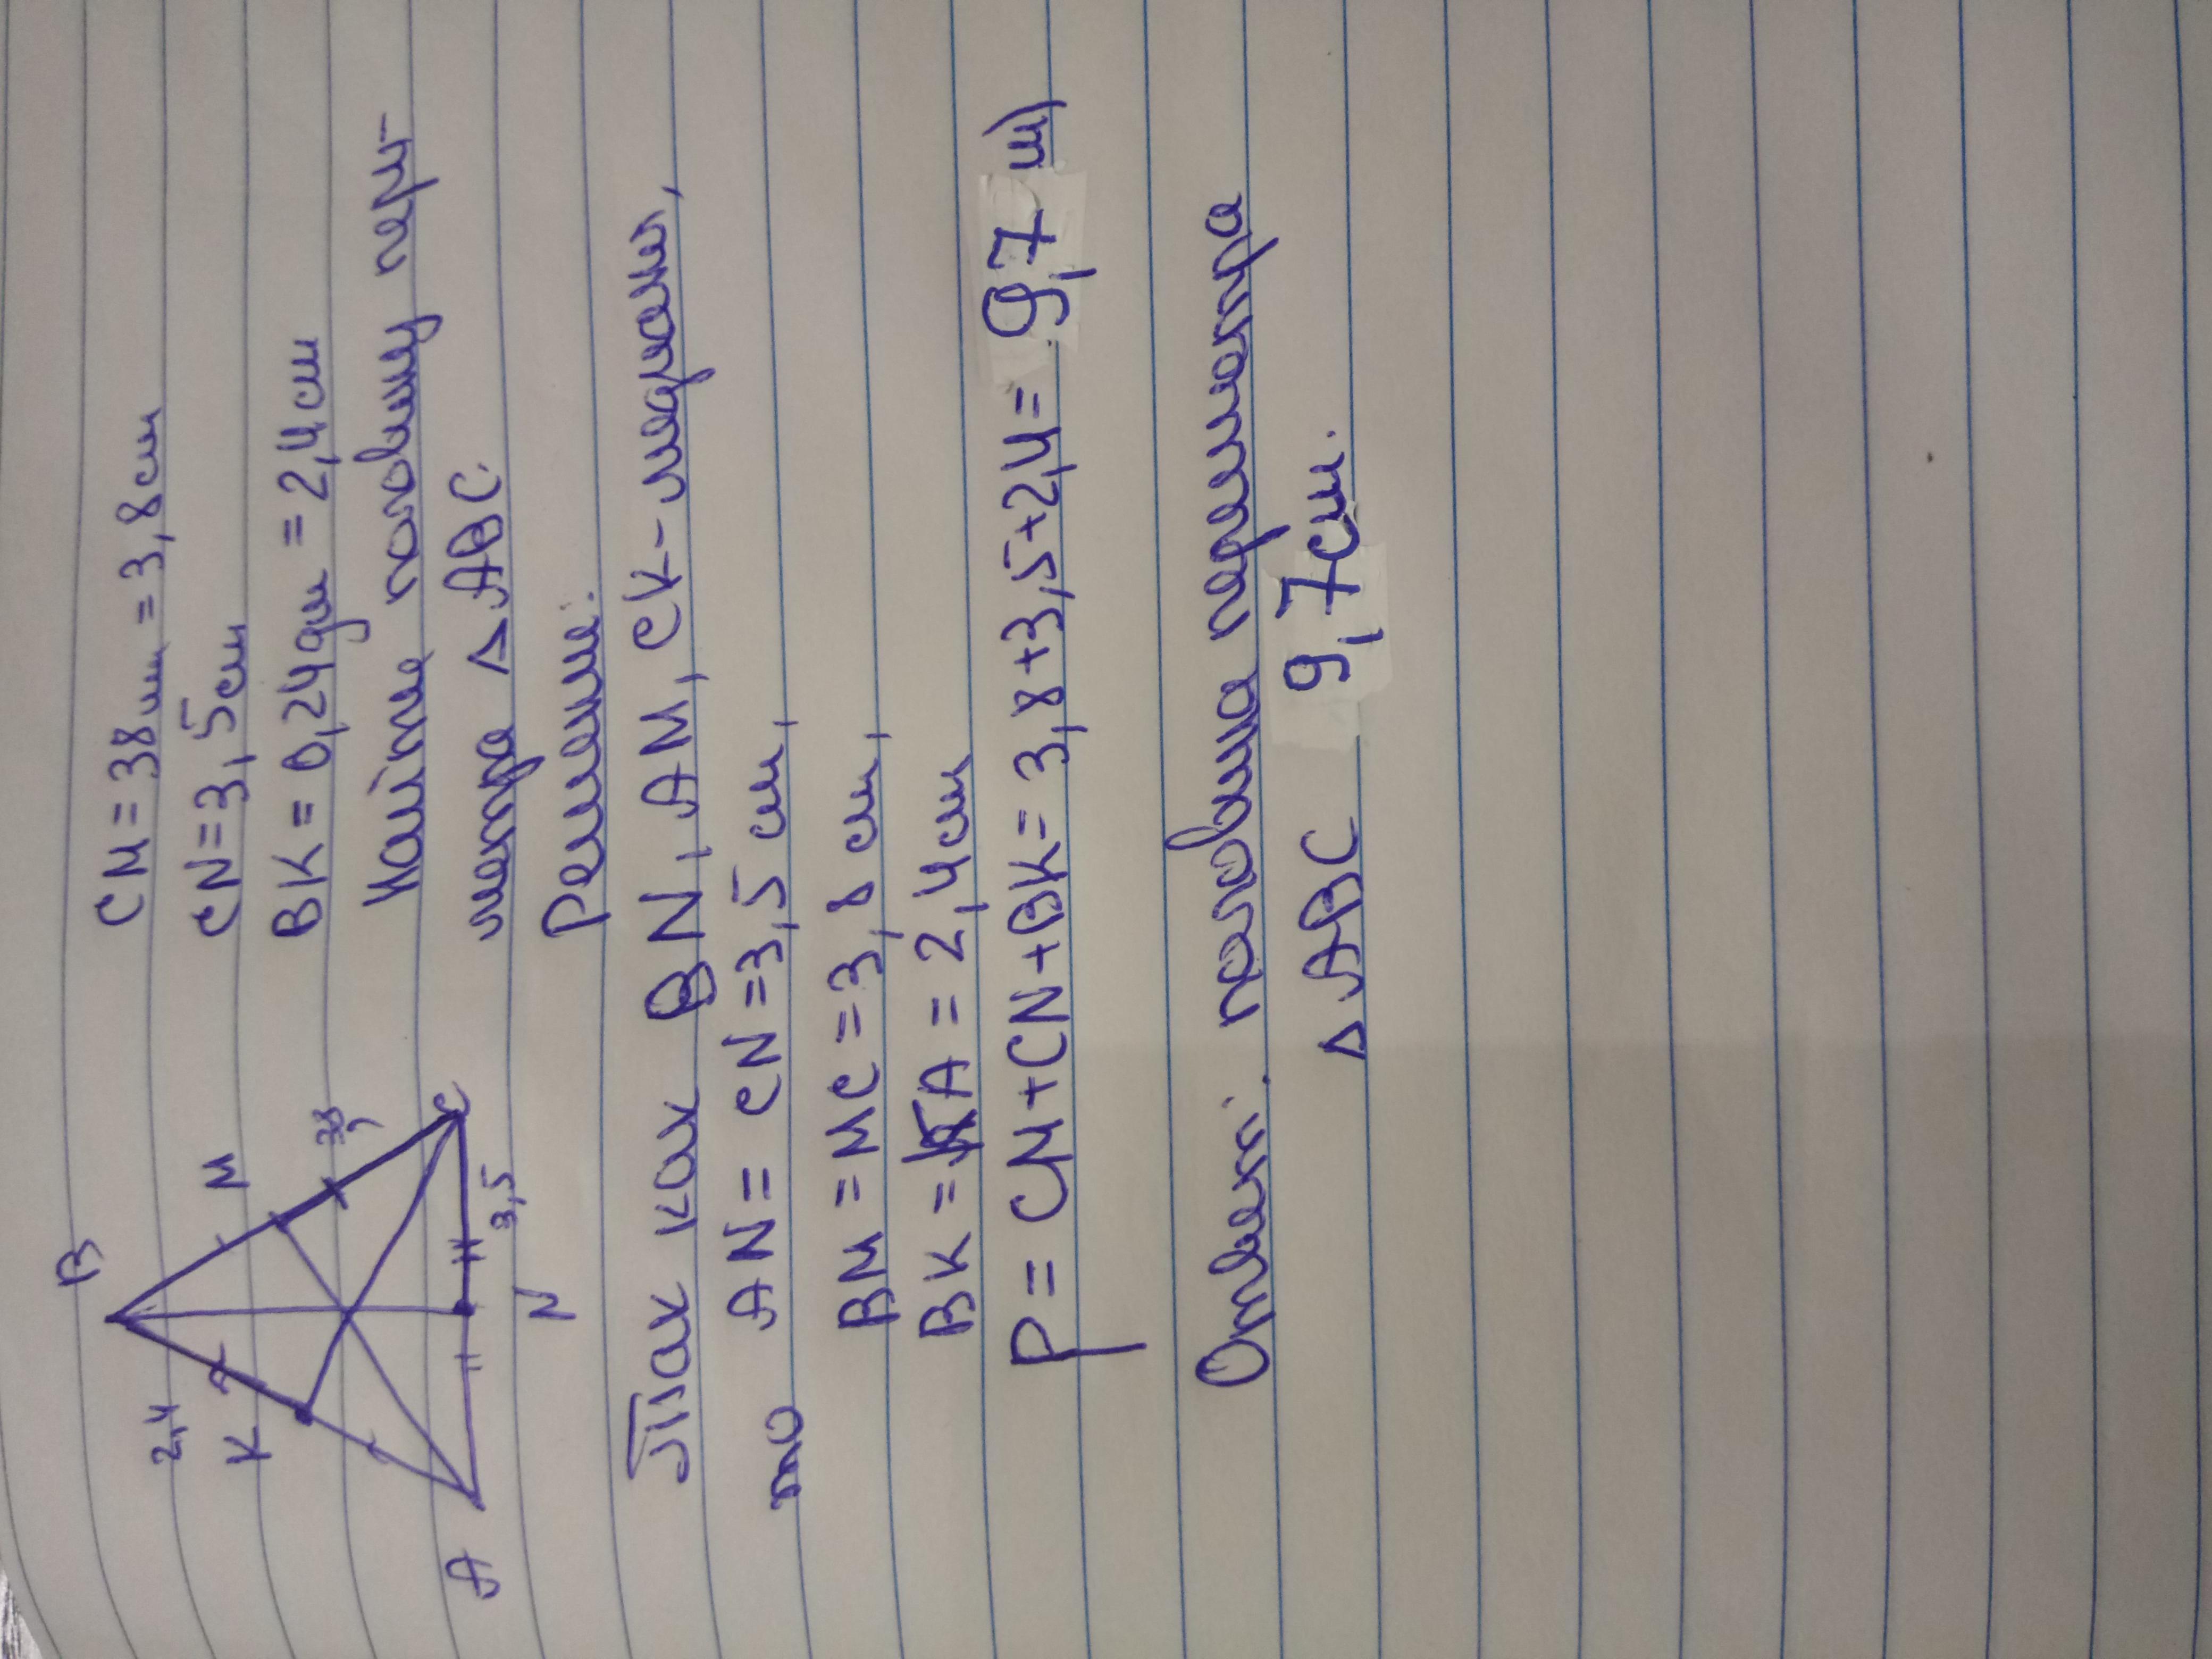 B
CM = 38мм = 3,8см
2,4
M
CN = 3,5см
K
BK = 0,24дм = 2,4см
3,8
Найти половину пери-
A
C
3,5
метра △ ABC.
N
Решение:
Так как BN, AM, CK - медианы,
то AN = CN = 3,5 см,
BM = MC = 3,8 см,
BK = KA = 2,4см
P = CM + CN + BK = 3,8 + 3,5 + 2,4 = 9,7 см)
Ответ: половина периметра
△ ABC 9,7см.